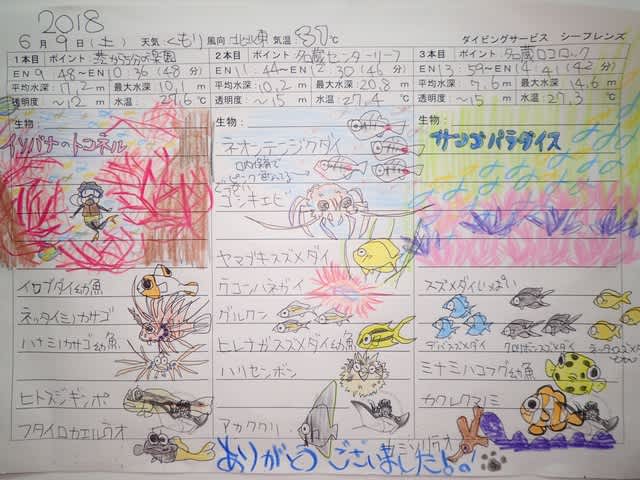 2018
6月9日(土) 天気 くもり 風向 北北東 気温 30℃ ダイビングサービス シーフレンズ
1本目 ポイント 港から5分の楽園
EN 9:48~EN 10:36(48分)
平均水深: 17.2m 最大水深: 10.1m
透明度: ~12m 水温: 27.6℃
生物:
イソバナのトコネル
イロブダイ幼魚
ネッタイミノカサゴ
ハナミノカサゴ幼魚
ヒトスジギンポ
フタイロカエルウオ
2本目 ポイント 名蔵センターリーフ
44~EN 2:30(46分)
平均水深: 10.2m 最大水深: 20.8m
透明度: ~15m 水温: 27.4℃
生物:
ネオンテンジクダイ
口内保育で
ゴシキエビ
ヤマブキスズメダイ
ウコンハネガイ
グルクン
ヒレナガスズメダイ幼魚
ハリセンボン
アカククリ
3本目 ポイント 名蔵ロコロック
EN 13:59~EN 14:41(42分)
平均水深: 7.6m 最大水深: 14.6m
透明度: ~15m 水温: 27.3℃
生物:
サンゴパラダイス
スズメダイいっぱい
デバスズメダイ クロリボンスズメダイ
ミナミハコフグ幼魚
カクレクマノミ
ありがとうございましたよの